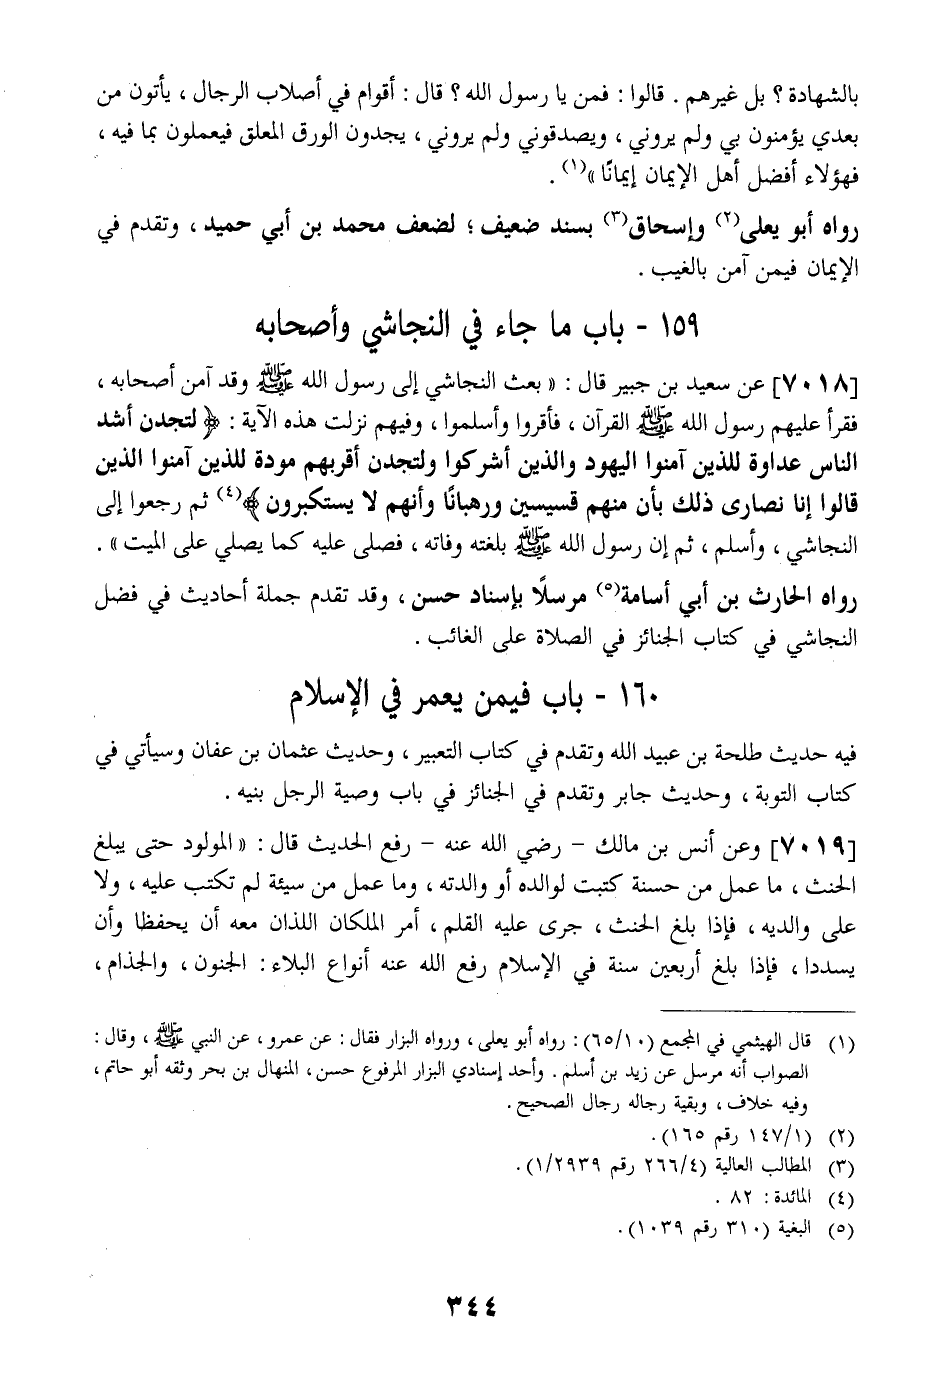 بالشهادة ؟ بل غيرهم . قالوا : فمن يا رسول الله ؟ قال : أقوام في أصلاب الرجال ، يأتون من
بعدي يؤمنون بي ولم يروني ، ويصدقوني ولم يروني ، يجدون الورق المعلق فيعملون بما فيه ،
فهؤلاء أفضل أهل الإيمان إيمانًا »(١) .
رواه أبو يعلى(٢) وإسحاق(٣) بسند ضعيف ؛ لضعف محمد بن أبي حميد ، وتقدم في
الإيمان فيمن آمن بالغيب .
١٥٩ - باب ما جاء في النجاشي وأصحابه
[٧٠١٨] عن سعيد بن جبير قال : « بعث النجاشي إلى رسول الله ﷺ وقد آمن أصحابه ،
فقرأ عليهم رسول الله ﷺ القرآن ، فأقروا وأسلموا ، وفيهم نزلت هذه الآية : ﴿ لتجدن أشد
الناس عداوة للذين آمنوا اليهود والذين أشركوا ولتجدن أقربهم مودة للذين آمنوا الذين
قالوا إنا نصارى ذلك بأن منهم قسيسين ورهبانًا وأنهم لا يستكبرون ﴾(٤) ثم رجعوا إلى
النجاشي ، وأسلم ، ثم إن رسول الله ﷺ بلغته وفاته ، فصلى عليه كما يصلي على الميت » .
رواه الحارث بن أبي أسامة(٥) مرسلًا بإسناد حسن ، وقد تقدم جملة أحاديث في فضل
النجاشي في كتاب الجنائز في الصلاة على الغائب .
١٦٠ - باب فيمن يعمر في الإسلام
فيه حديث طلحة بن عبيد الله وتقدم في كتاب التعبير ، وحديث عثمان بن عفان وسيأتي في
كتاب التوبة ، وحديث جابر وتقدم في الجنائز في باب وصية الرجل بنيه .
[٧٠١٩] وعن أنس بن مالك - رضي الله عنه - رفع الحديث قال : « المولود حتى يبلغ
الحنث ، ما عمل من حسنة كتبت لوالده أو والدته ، وما عمل من سيئة لم تكتب عليه ، ولا
على والديه ، فإذا بلغ الحنث ، جرى عليه القلم ، أمر الملكان اللذان معه أن يحفظا وأن
يسددا ، فإذا بلغ أربعين سنة في الإسلام رفع الله عنه أنواع البلاء : الجنون ، والجذام ،
(١) قال الهيثمي في المجمع (٦٥/١٠) : رواه أبو يعلى ، ورواه البزار فقال : عن عمرو ، عن النبي ﷺ ، وقال :
الصواب أنه مرسل عن زيد بن أسلم . وأحد إسنادي البزار المرفوع حسن ، المنهال بن بحر وثقه أبو حاتم ،
وفيه خلاف ، وبقية رجاله رجال الصحيح .
(٢) (١٤٧/١ رقم ١٦٥) .
(٣) المطالب العالية (٢٦٦/٤ رقم ١/٢٩٣٩) .
(٤) المائدة : ٨٢ .
(٥) البغية (٣١٠ رقم ١٠٣٩) .
٣٤٤